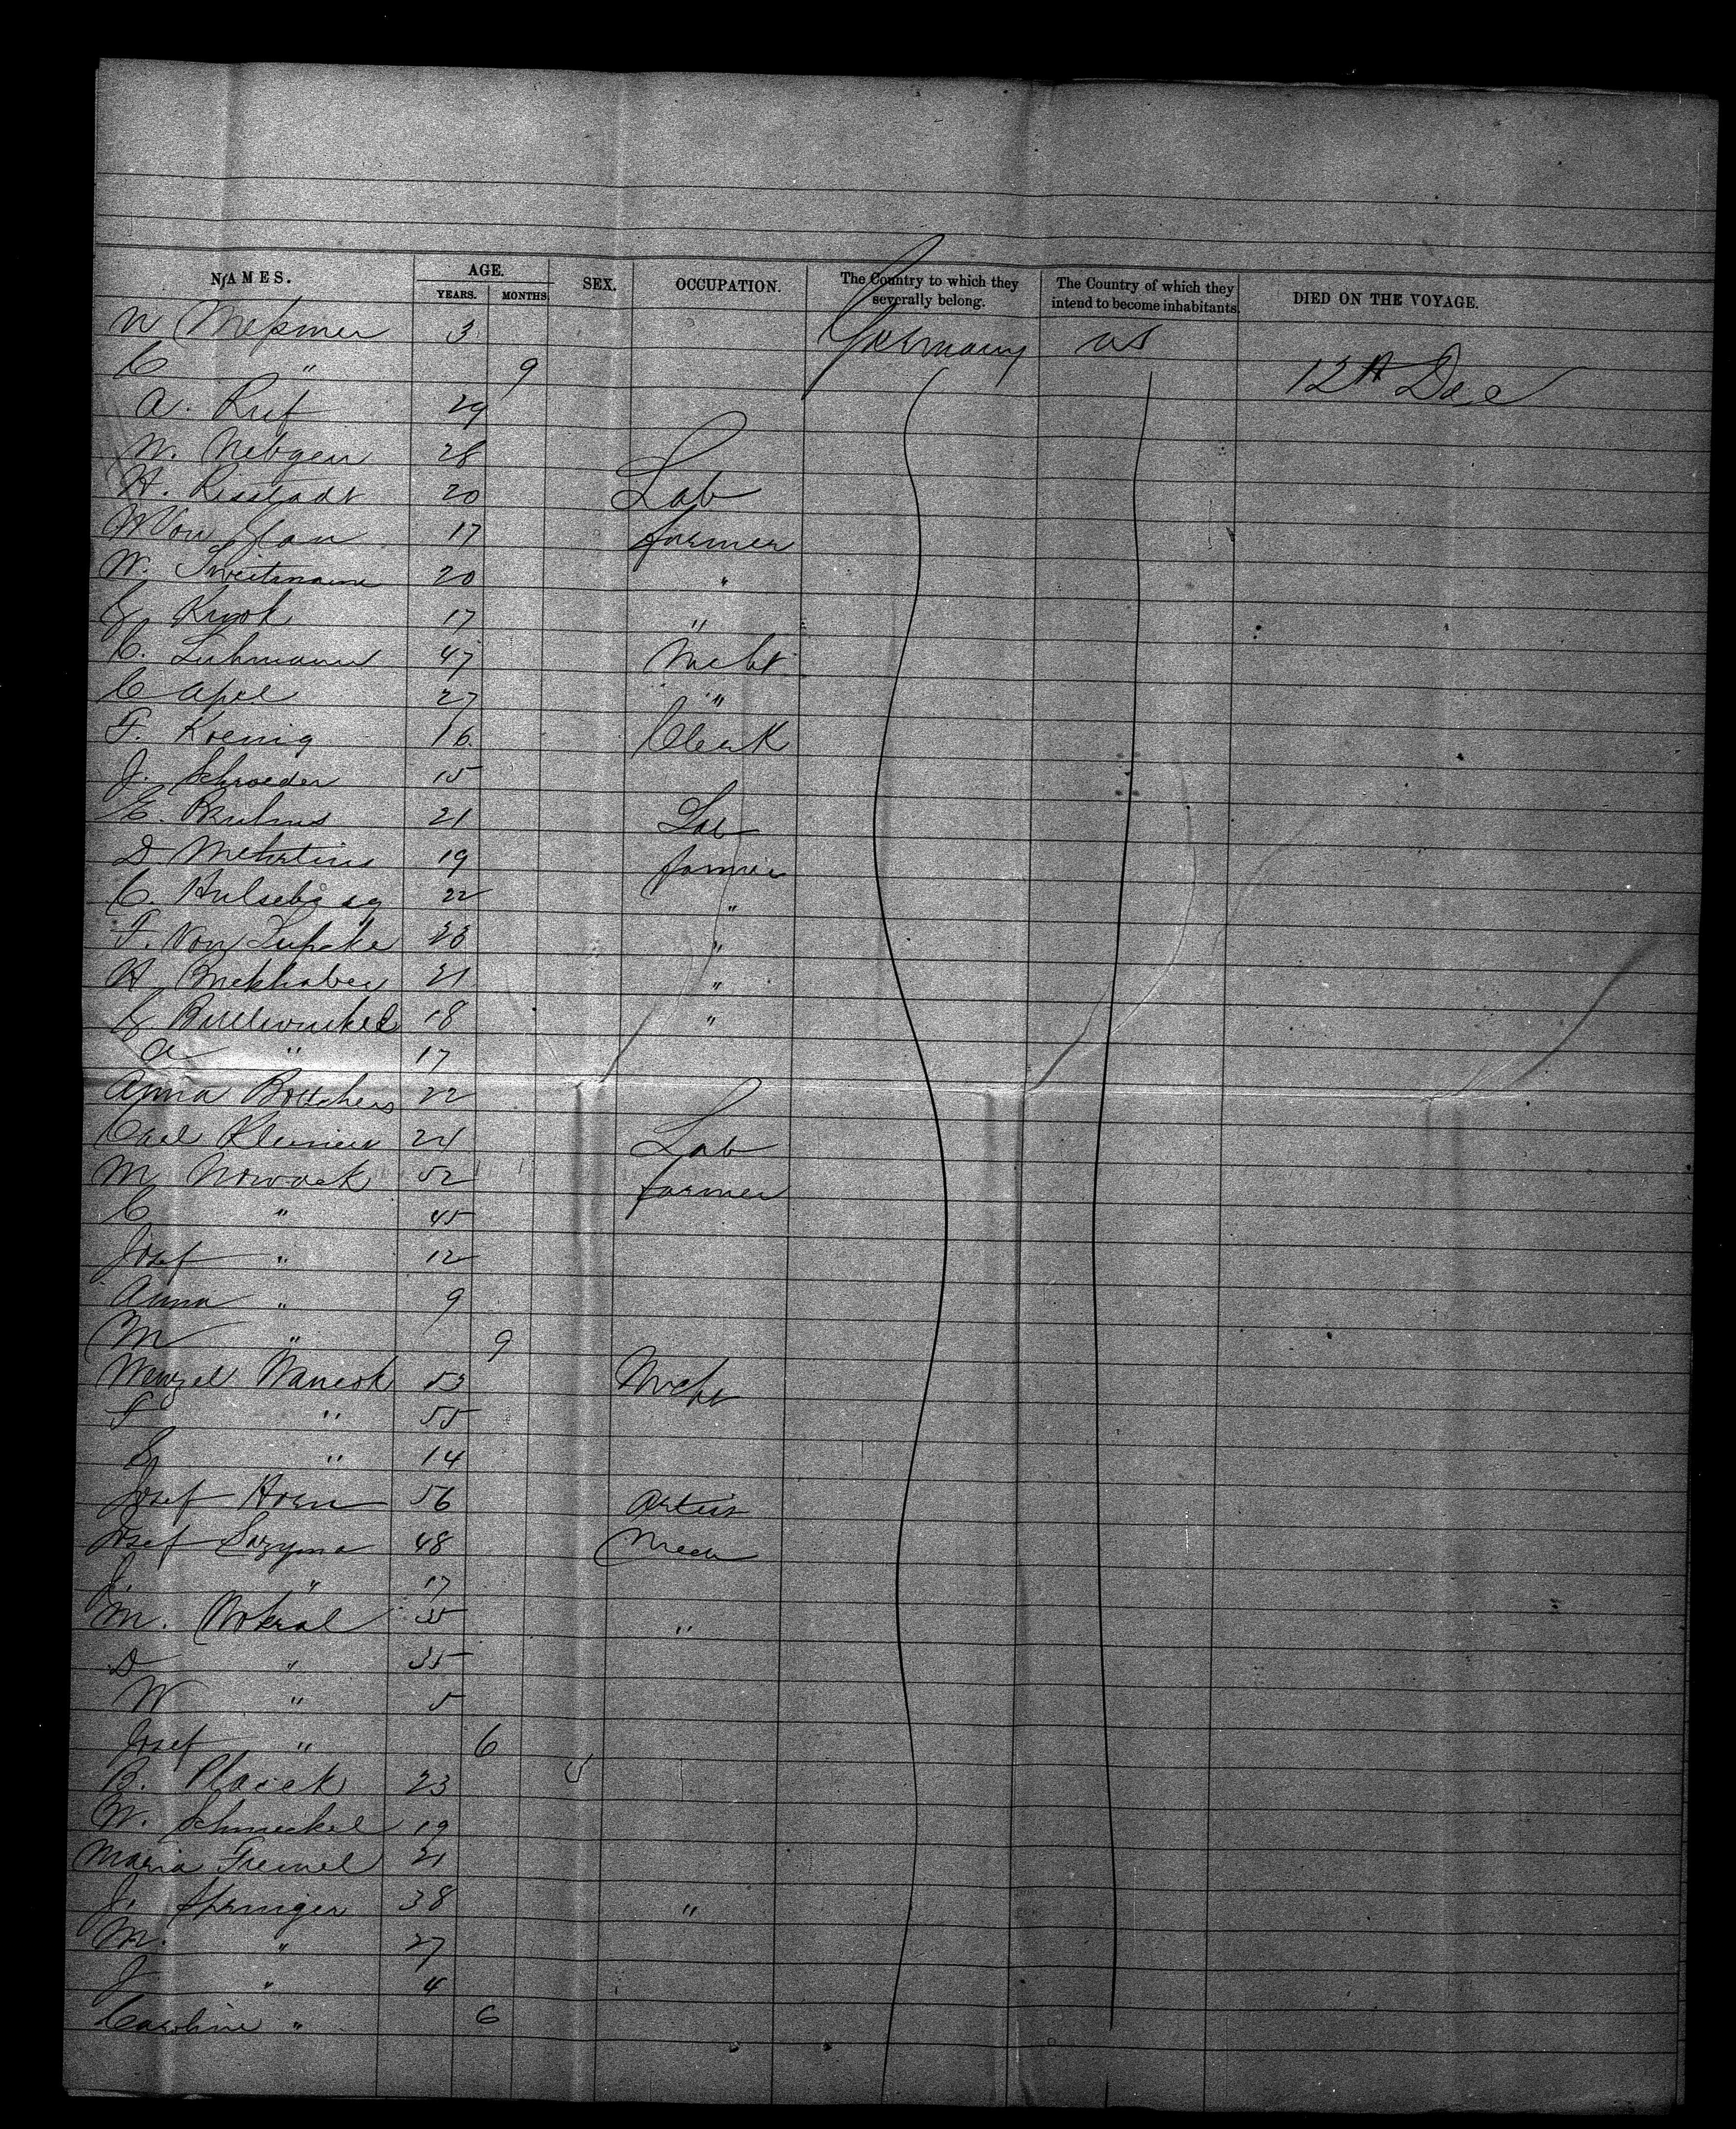 NAMES. AGE. SEX. OCCUPATION. The Country to which they severally belong. The Country of which they intend to become inhabitants. DIED ON THE VOYAGE.
YEARS. MONTHS
N Meßmer 3 Germany US
C " 9 12th Dec
A. Ruf 29
W. Nebgen 28
H. Risstadt 20 Lab
Von 17 farmer
W. 20 "
G. Krook 17 "
C. Luhmann 47 Mcht
C Apel 27 "
F. Koenig 16 Clerk
J. Schroeder 15
E. Bruhns 21 Lab
D Mehrtins 19 farmer
C. 22 "
F. Von Lupcke 23 "
H 21 "
G Bullwinkel 18 "
A " 17
Anna Bottchers 22
Carl 24 Lab
M Nowack 52 farmer
C " 45
Josef " 12
Anna " 9
M " 9
Wenzel Waneck 53 Mcht
F " 55
" 14
Josef Horn 56 Artist
Josef 48 Mech
J. " 17
M. 35 "
D " 35
W " 5
Josef " 6
B. Placek 23
W. Schmeckel 19
Maria 21
J. Springer 38 "
M. " 27
J " 4
Caroline " 6